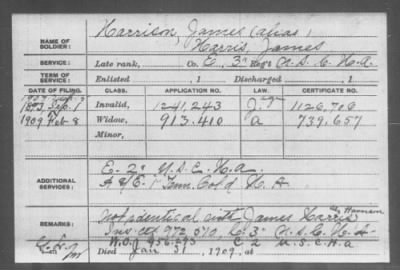 NAME OF SOLDIER: Harrison, James (alias)
Harris, James
SERVICE: Late rank, Co. E, 3" Reg't U.S.C.H.A.
TERM OF SERVICE: Enlisted , 1 . Discharged , 1 .
DATE OF FILING. CLASS. APPLICATION NO. LAW. CERTIFICATE NO.
1897 Sep. 1 Invalid, 1241,243 1126,706
1909 Feb 8 Widow, 913.410 a 739,657
Minor,
ADDITIONAL SERVICES: E-2" U.S.C.H.A.
A & E-1" Tenn. Col'd H.A.
REMARKS: Not identical with James Harris
Inv. 972,510, C. 3" U.S.C.H.A.
W.O. C 2 U.S.C.H.A
Died Jan 31, 1909.